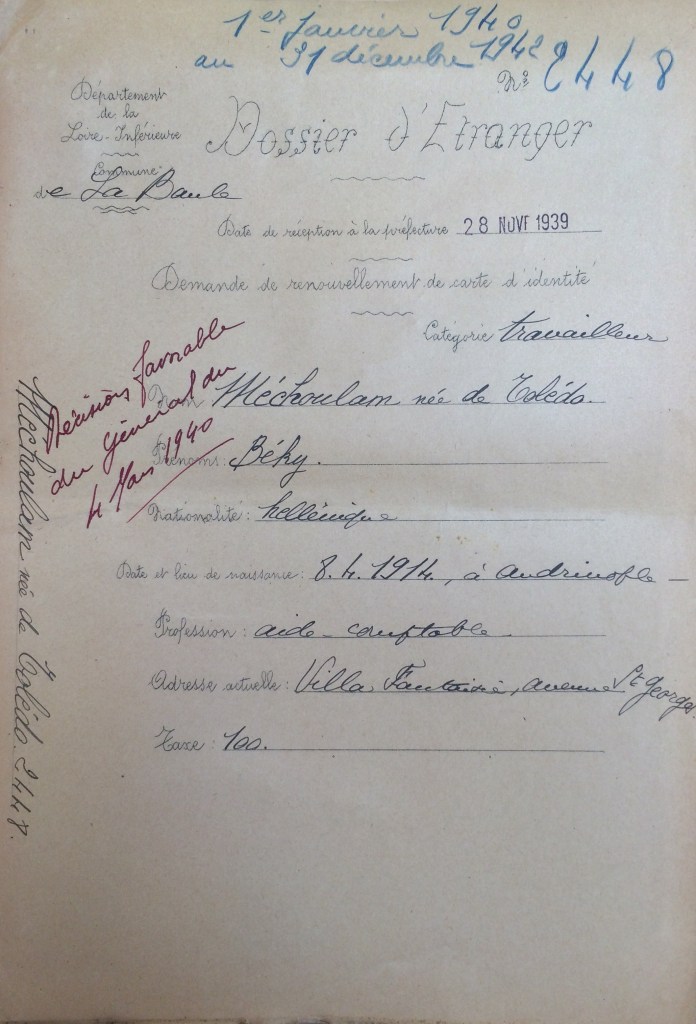 1er janvier 1940
au 31 décembre 1942
Nº 2448
Département
de la
Loire-Inférieure
Commune
de La Baule
Dossier d'Etranger
Date de réception à la préfecture 28 NOVE 1939
Demande de renouvellement de carte d'identité
Catégorie travailleur
Décision favorable
du Général du
4 Mars 1940
Nom Méchoulam née de Tolédo.
Prénoms: Béky.
Nationalité: hellénique
Date et lieu de naissance: 8.4.1914, à Andrinople
Profession: aide-comptable
Adresse actuelle: Villa Fantaisie, avenue St Georges.
Taxe: 100.
Méchoulam née de Tolédo. 2448.